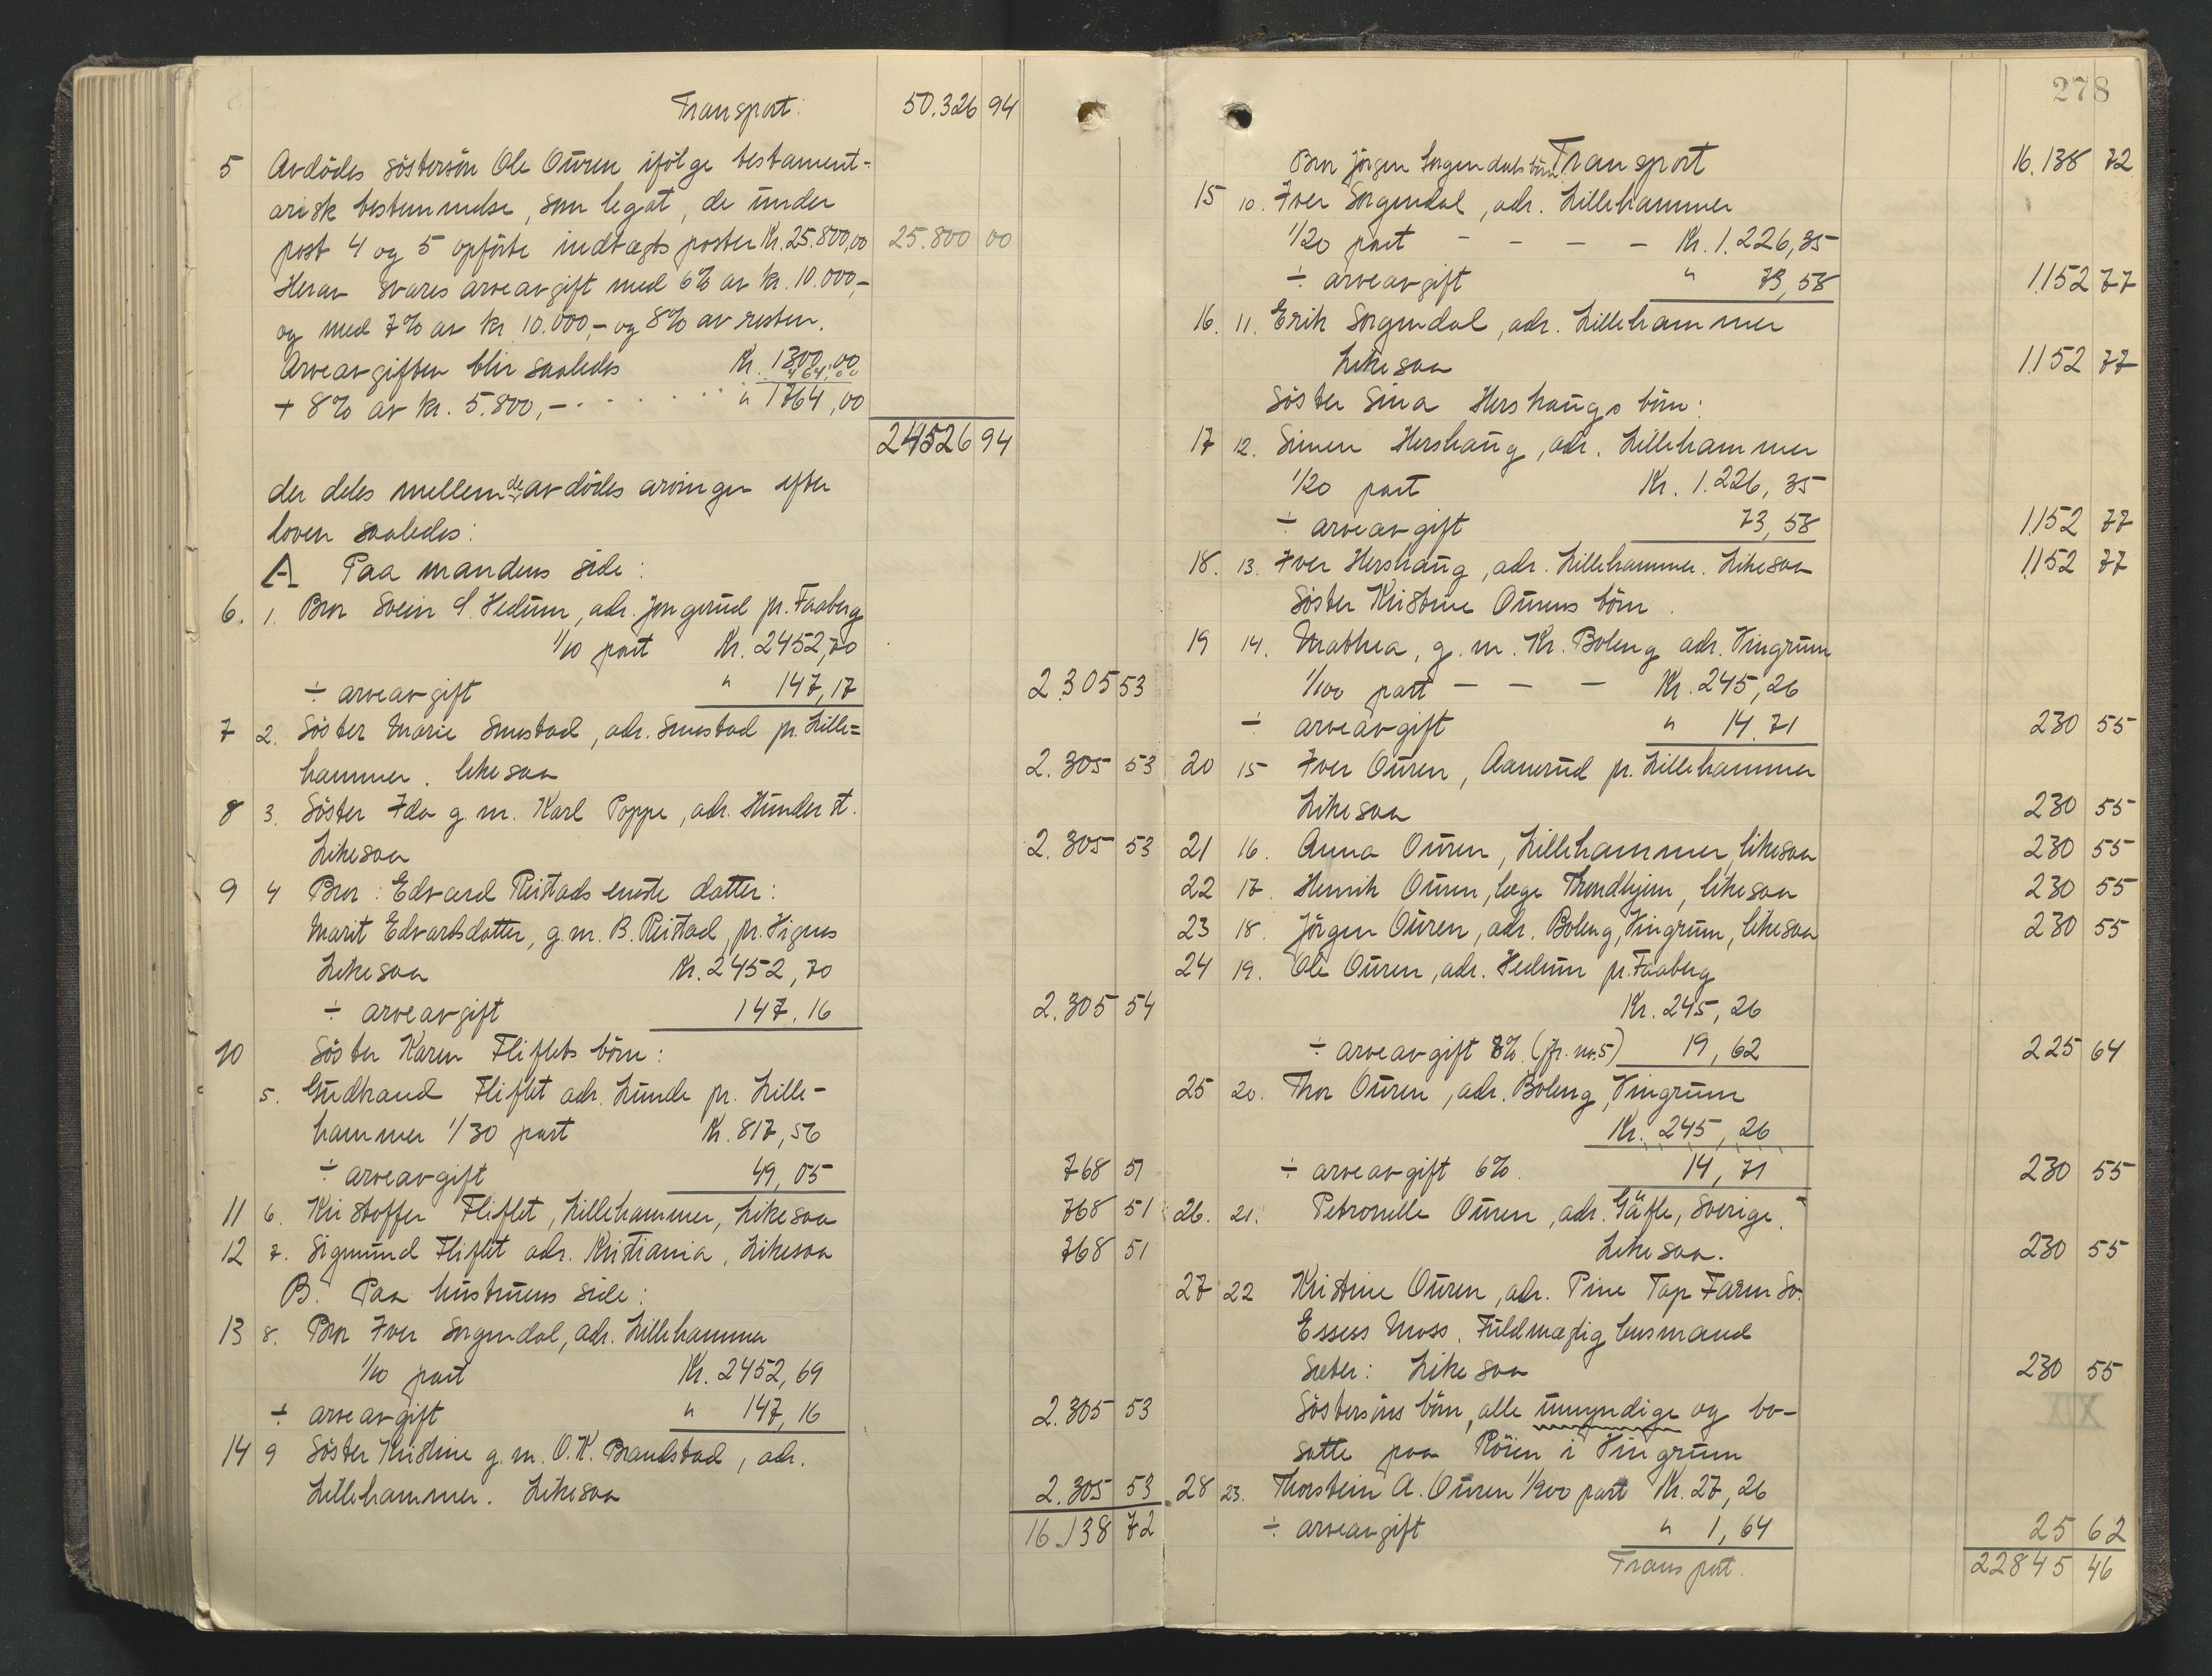 Transport: 50.326 94
5 Avdödes söstersön Ole Ouren ifölge testament-
arisk bestemmelse, som legat, de under
post 4 og 5 opförte indtægts poster Kr. 25.800,00 25.800 00
Herav svares arveavgift med 6% av kr. 10.000,-
og med 7% av kr 10.000,- og 8% av resten.
Arveavgiften blir saaledes Kr. 1300,00
+ 8% av kr. 5.800,- . . . . . . 464,00
" 1764,00
24526 94
der deles mellem de avdödes arvinger efter
loven saaledes:
A Paa mandens side:
6. 1. Bror Svein S. Hedum, adr. Jongerud pr. Faaberg
1/10 part Kr. 2452,70
÷ arveavgift " 147,17 2.305 53
7 2. Söster Marie Smestad, adr. Smestad pr. Lille=
hammer. likesaa 2.305 53
8 3. Söster Ida g. m. Karl Poppe, adr. Hunder st.
Likesaa 2.305 53
9 4 Bror: Edvard Ristads eneste datter:
Marit Edvardsdatter, g. m. B. Ristad, pr. Vignes
Likesaa Kr. 2452,70
÷ arveavgift 147.16 2.305 54
10 Söster Karen Fliflets börn:
5. Gudbrand Fliflet adr. Lunde pr. Lille-
hammer 1/30 part Kr. 817,56
÷ arveavgift 49,05 768 51
11 6. Kristoffer Fliflet, Lillehammer, Likesaa 768 51
12 7. Sigmund Fliflet adr. Kristiania, Likesaa 768 51
B. Paa hustruens side:
13 8. Bror Iver Sorgendal, adr. Lillehammer
1/10 part Kr. 2452,69
÷ arveavgift " 147,16 2.305 53
14 9 Söster Kristine g. m. O. K. Brandstad, adr.
Lillehammer. Likesaa 2.305 53
16.138 72
278
Bror Jörgen Sorgendals börn Transport 16.138 72
15 10. Iver Sorgendal, adr. Lillehammer
1/20 part - - - - Kr. 1.226,35
÷ arveavgift " 73,58 1152 77
16. 11. Erik Sorgendal, adr. Lillehammer
Likesaa 1152 77
Söster Sina Hershaugs börn:
17 12. Simen Hershaug, adr. Lillehammer
1/20 part Kr. 1.226,35
÷ arveavgift 73,58 1152 77
18. 13. Iver Hershaug, adr. Lillehammer. Likesaa 1152 77
Söster Kristine Ourens börn.
19 14. Mathea, g. m. Kr. Boleng adr. Vingrum
1/100 part - - - Kr. 245,26
÷ arveavgift " 14.71 230 55
20 15 Iver Ouren, Aanerud pr. Lillehammer
Likesaa 230 55
21 16. Anna Ouren, Lillehammer, likesaa 230 55
22 17. Henrik Ouren, læge Trondhjem, likesaa 230 55
23 18. Jörgen Ouren, adr. Boleng, Vingrum, likesaa 230 55
24 19. Ole Ouren, adr. Hedum pr. Faaberg
Kr. 245,26
÷ arveavgift 8% (jfr. nr. 5) 19,62 225 64
25 20. Thor Ouren, adr. Boleng, Vingrum
Kr. 245,26
÷ arveavgift 6%. 14,71 230 55
26. 21. Petronelle Ouren, adr. Gäfle, Sverige.
Likesaa. 230 55
27 22 Kristine Ouren, adr. Pine Top Farm So.
Essess Mass. Fuldmægtig lensmand
Sæter: Likesaa 230 55
Söstersöns börn, alle umyndige og bo-
satte paa Röien i Vingrum
28 23. Thorstein A. Ouren 1/900 part Kr. 27,26
÷ arveavgift " 1,64 25 62
Transport. 22845 46